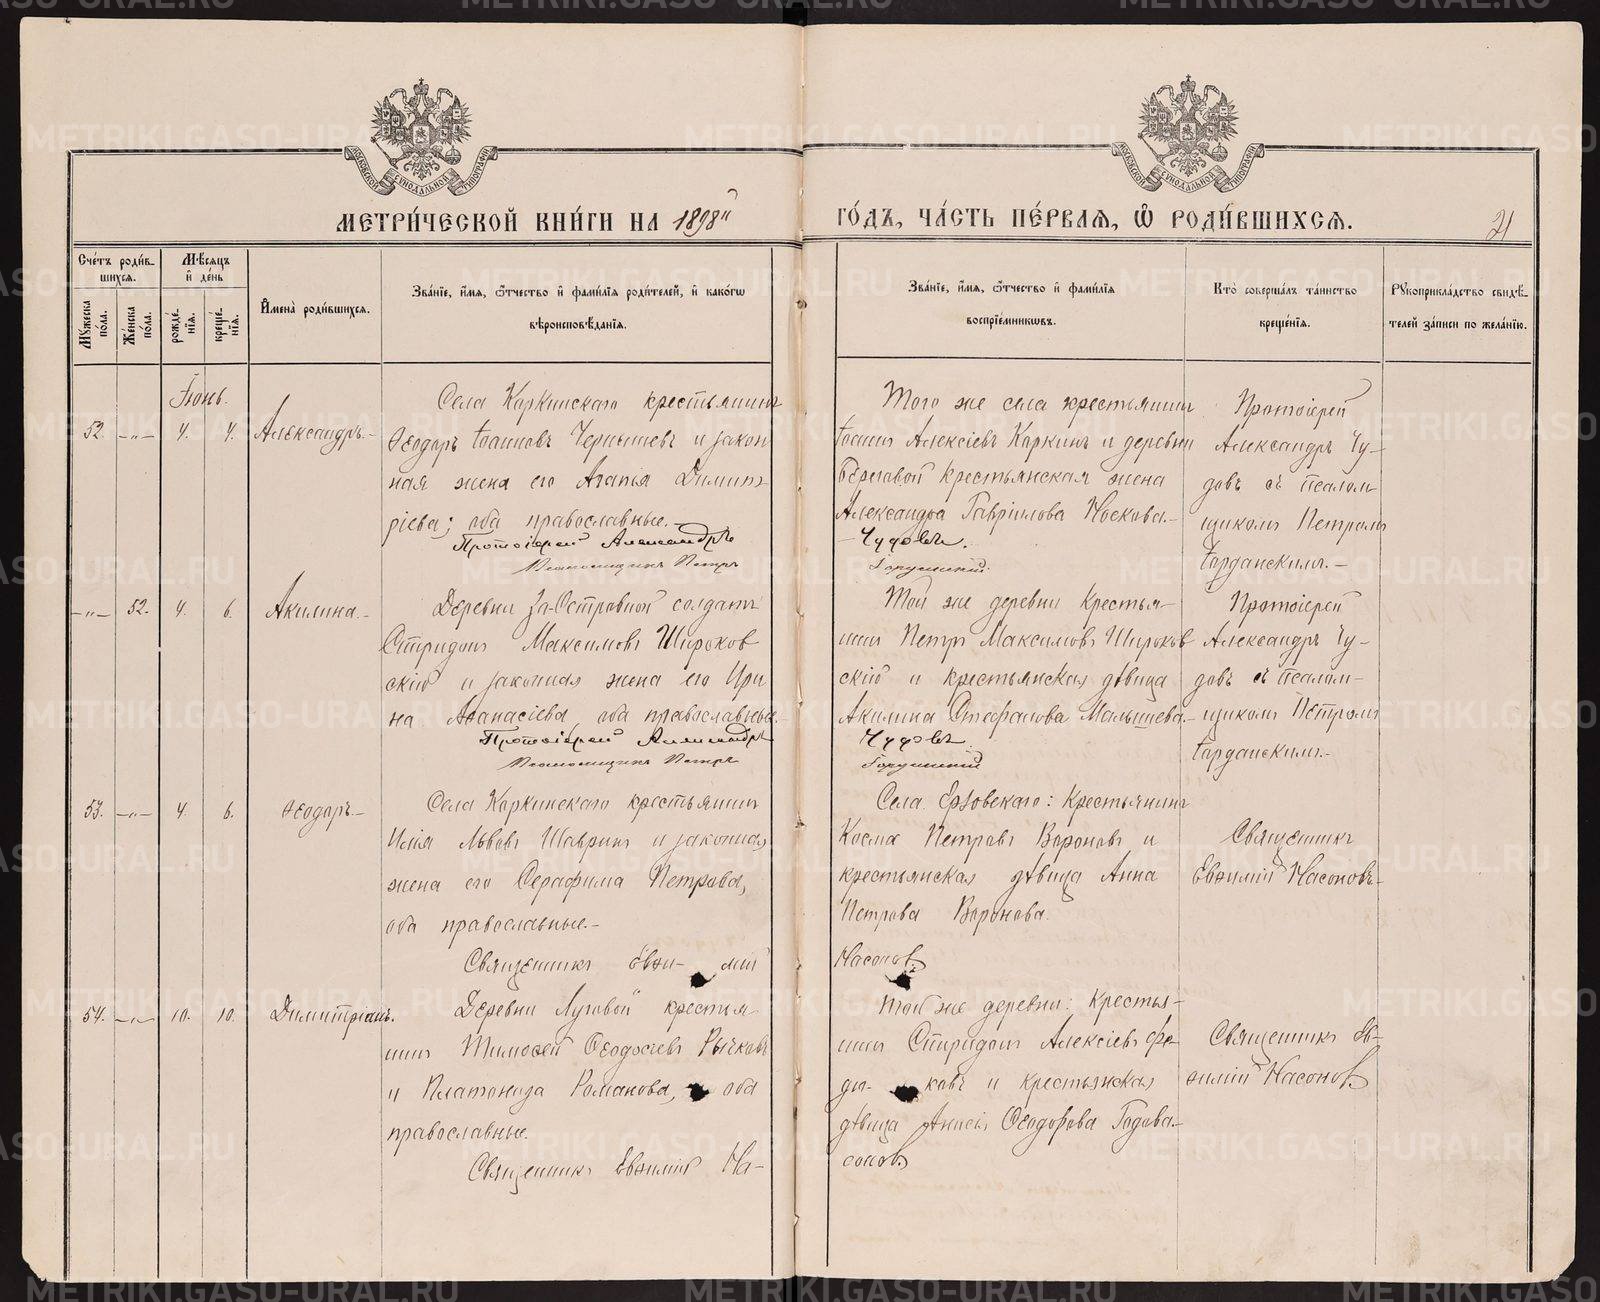 МЕТРИ́ЧЕСКОЙ КНИ́ГИ НА 1898й
ГО́ДЪ, ЧА́СТЬ ПЕ́РВАЯ, Ѡ҆ РОДИ́ВШИХСЯ.
21
Сче́тъ роди́в-
шихся.
Мѣ́сяцъ
и҆ де́нь
Мꙋ́жеска по́ла.
Же́нска по́ла.
рожде́-
нїя.
креще́-
нїя.
И҆мена̀ роди́вшихся.
Зва́нїе, и҆́мя, ѻ҆́тчество и҆ фами́лїя роди́телей, и҆ како́гѡ
вѣроисповѣ́данїя.
Зва́нїе, и҆́мя, ѻ҆́тчество и҆ фами́лїя
воспрїе́мникѡвъ.
Кто̀ соверша́лъ та́инство
креще́нїя.
Рꙋкоприкла́дство свидѣ́-
телей за́писи по жела́нїю.
Іюнь.
52. -"- 4. 4. Александръ.-
Села Каркинскаго крестьянинъ
Ѳеодоръ Іоанновъ Чернышевъ и закон
ная жена его Агапія Димит
ріева; оба православные.-
Протоіерей Александръ
Псаломщикъ Петръ
Того же села крестьянинъ
Іоаннъ Алексіевъ Каркинъ и деревни
Береговой крестьянская жена
Александра Гавріилова Носкова.-
Чудовъ.
Протоіерей
Александръ Чу-
довъ съ псалом
щикомъ Петромъ
-"- 52. 4. 6. Акилина.-
Деревни За-Островной солдатъ
Спиридонъ Максимовъ Широков
скій и законная жена его Ири
на Аѳанасіева, оба православные.-
Протоіерей Александръ
Псаломщикъ Петръ
Той же деревни крестья-
нинъ Петръ Максимовъ Широков
скій и крестьянская дѣвица
Акилина Стефанова Малышева.-
Чудовъ.
Протоіерей
Александръ Чу-
довъ съ псалом-
щикомъ Петромъ
53. -"- 4. 6. Ѳеодоръ.-
Села Каркинскаго крестьянинъ
Илія Львовъ Шавринъ и законная
жена его Серафима Петрова,
оба православные.-
Священникъ Евѳи- мій
Села Ерзовскаго: крестьянинъ
Косма Петровъ Вороновъ и
крестьянская дѣвица Анна
Петрова Воронова.
Насоновъ
Священникъ
Евѳимій Насоновъ.-
54. -"- 10. 10. Димитріанъ.
Деревни Луговой крестья
нинъ Тимоѳей Ѳеодосіевъ Рычковъ
и Платонида Романова, оба
православные.
Священникъ Евѳимій На-
Той же деревни: крестья-
нинъ Спиридонъ Алексіевъ Фе-
ди- ковъ и крестьянская
дѣвица Анисія Ѳеодорова
соновъ
Священникъ Ев-
ѳимій Насоновъ
METRIKI.GASO-URAL.RU